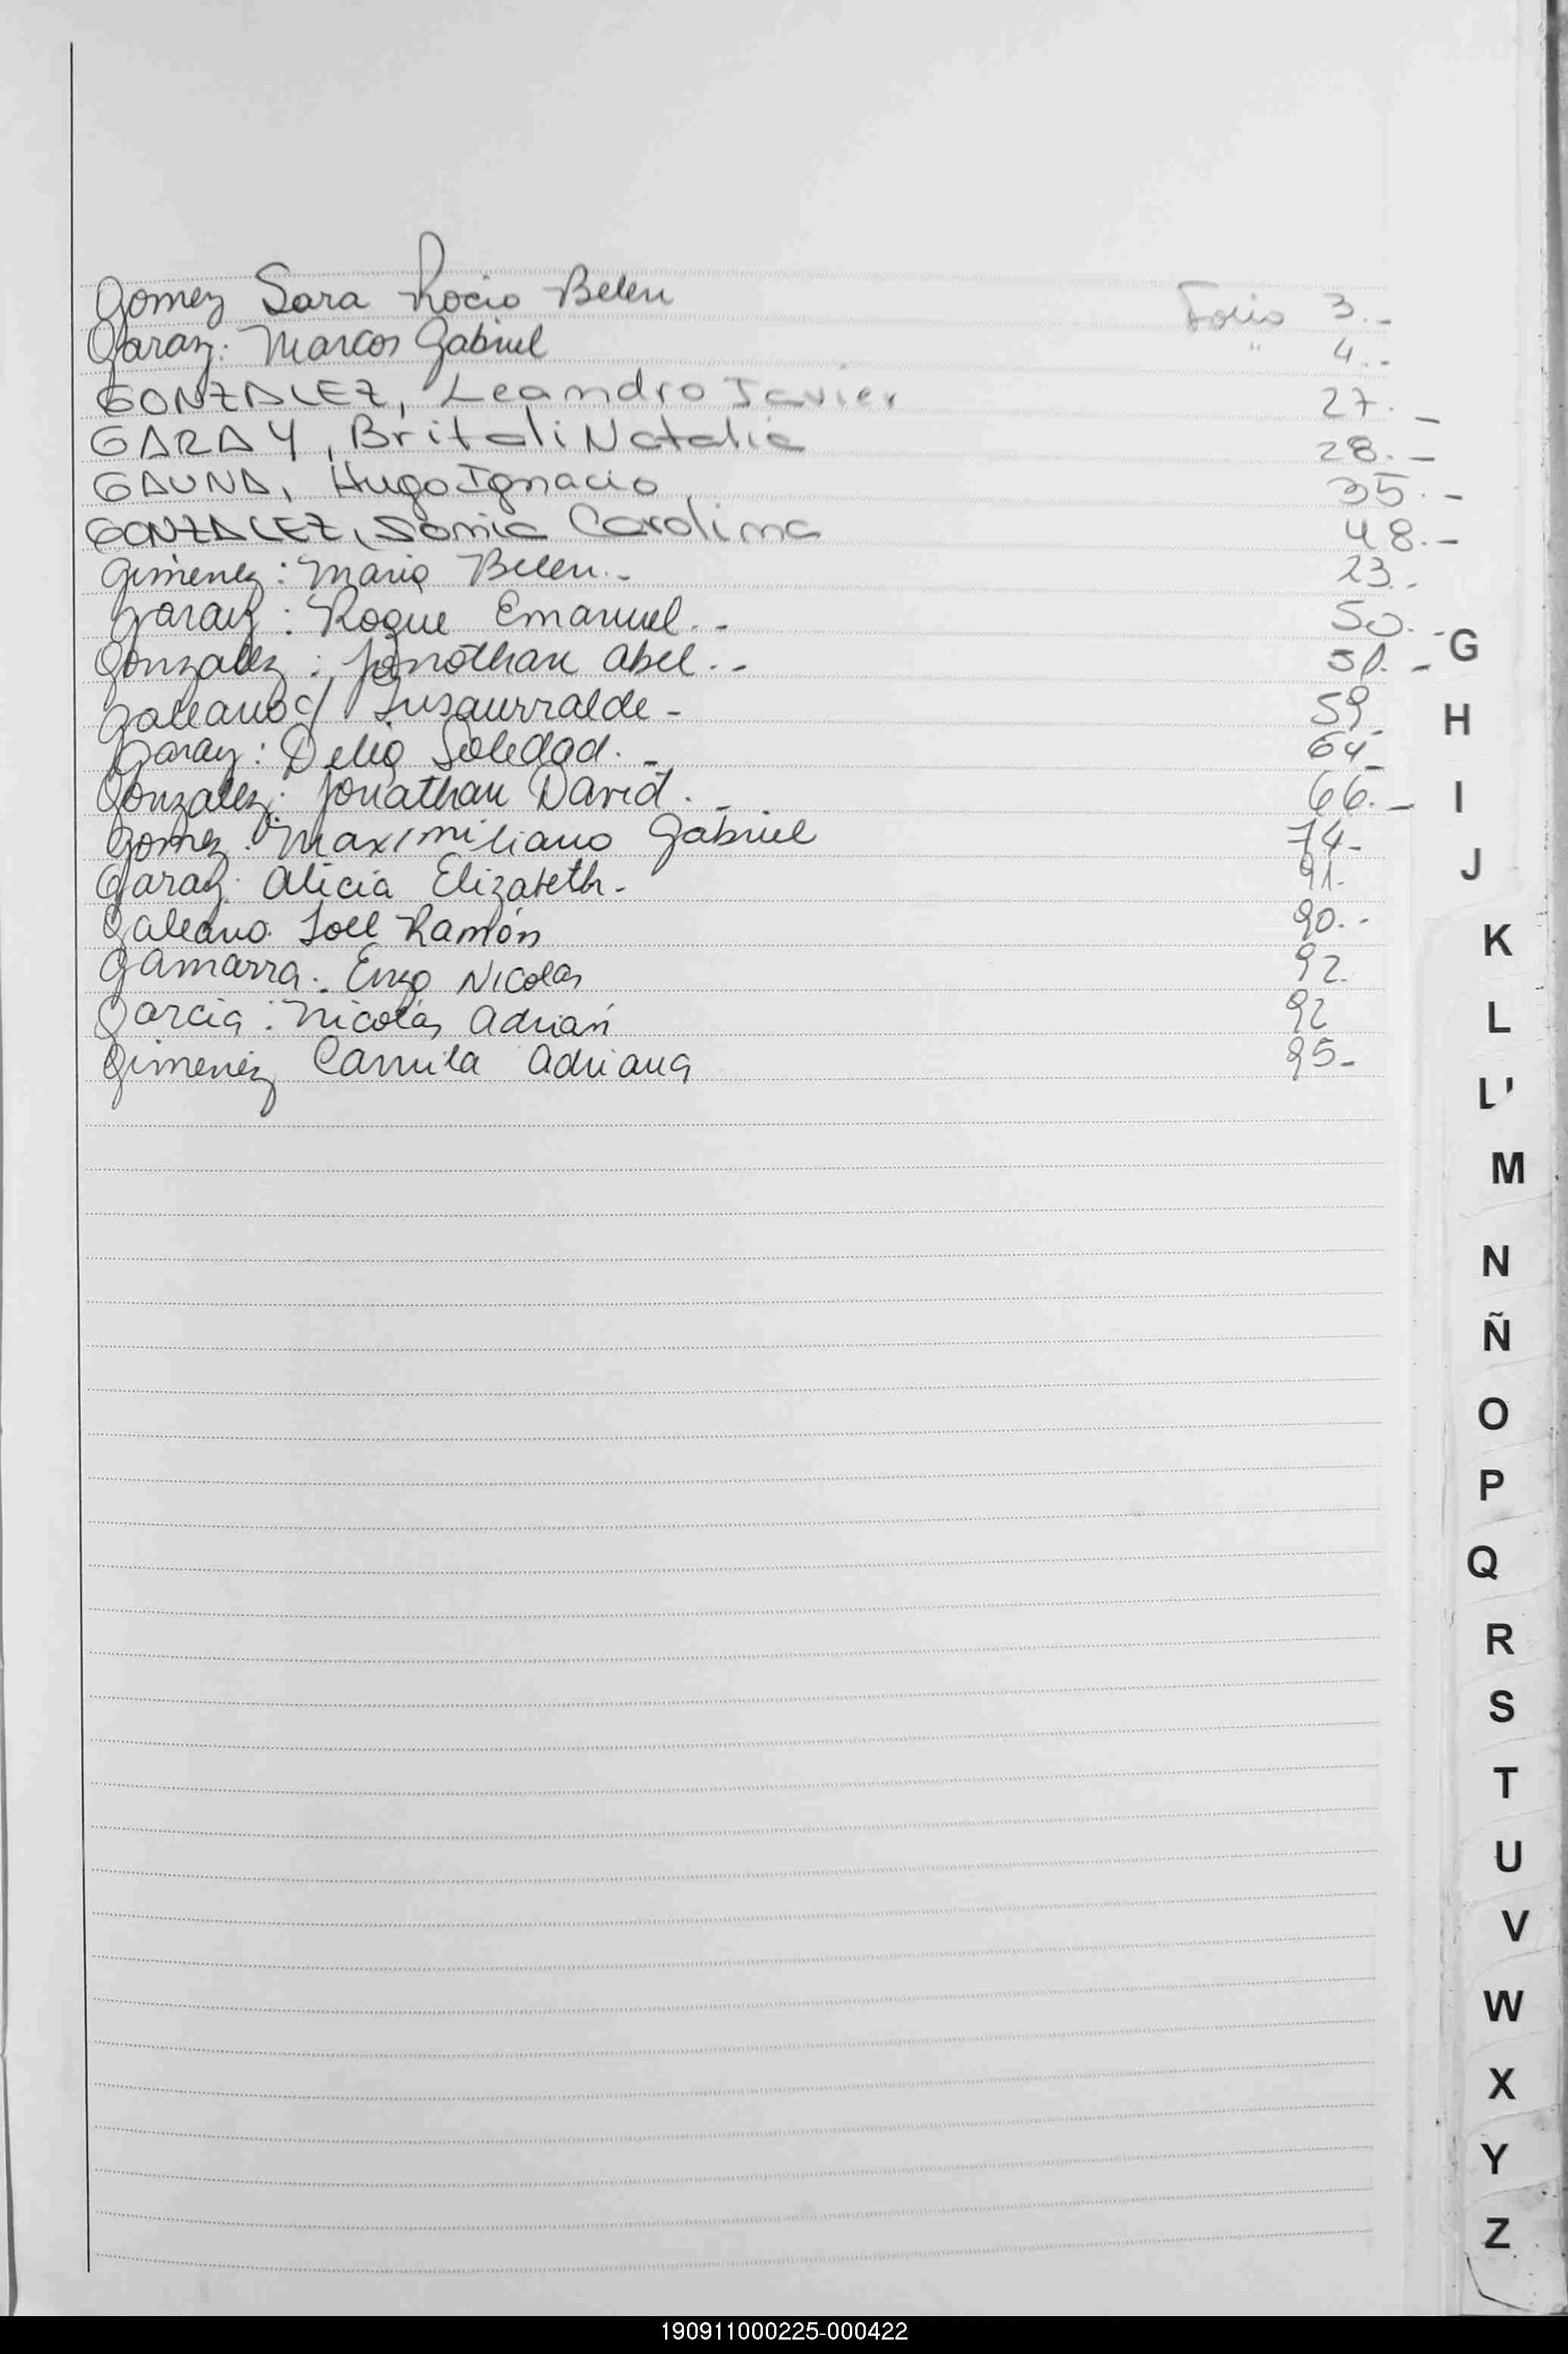 Gomez Sara Rocio Belen Folio 3.-
Garay: Marcos Gabriel " 4.-
GONZALEZ, Leandro Javier 27.-
GARAY, Britali Natalia 28.-
GAUNA, Hugo Ignacio 35.-
GONZALEZ, Sonia Carolina 48.-
Gimenez: Maria Belen.- 23.-
Garay: Roque Emanuel.- 50.-
Gonzalez: Jonathan Abel.- 51.-
Galeano c/ Insaurralde- 59.-
Garay: Delia Soledad.- 64-
Gonzalez: Jonathan David.- 66.-
Gomez: Maximiliano Gabriel 74-
Garay: Alicia Elizabeth- 91.-
Galeano. Joel Ramón 90.-
Gamarra: Enzo Nicolas 92.
Garcia: Nicolás Adrian 92
Gimenez Camila Adriana 95-
G
H
I
J
K
L
L'
M
N
Ñ
O
P
Q
R
S
T
U
V
W
X
Y
Z
190911000225-000422